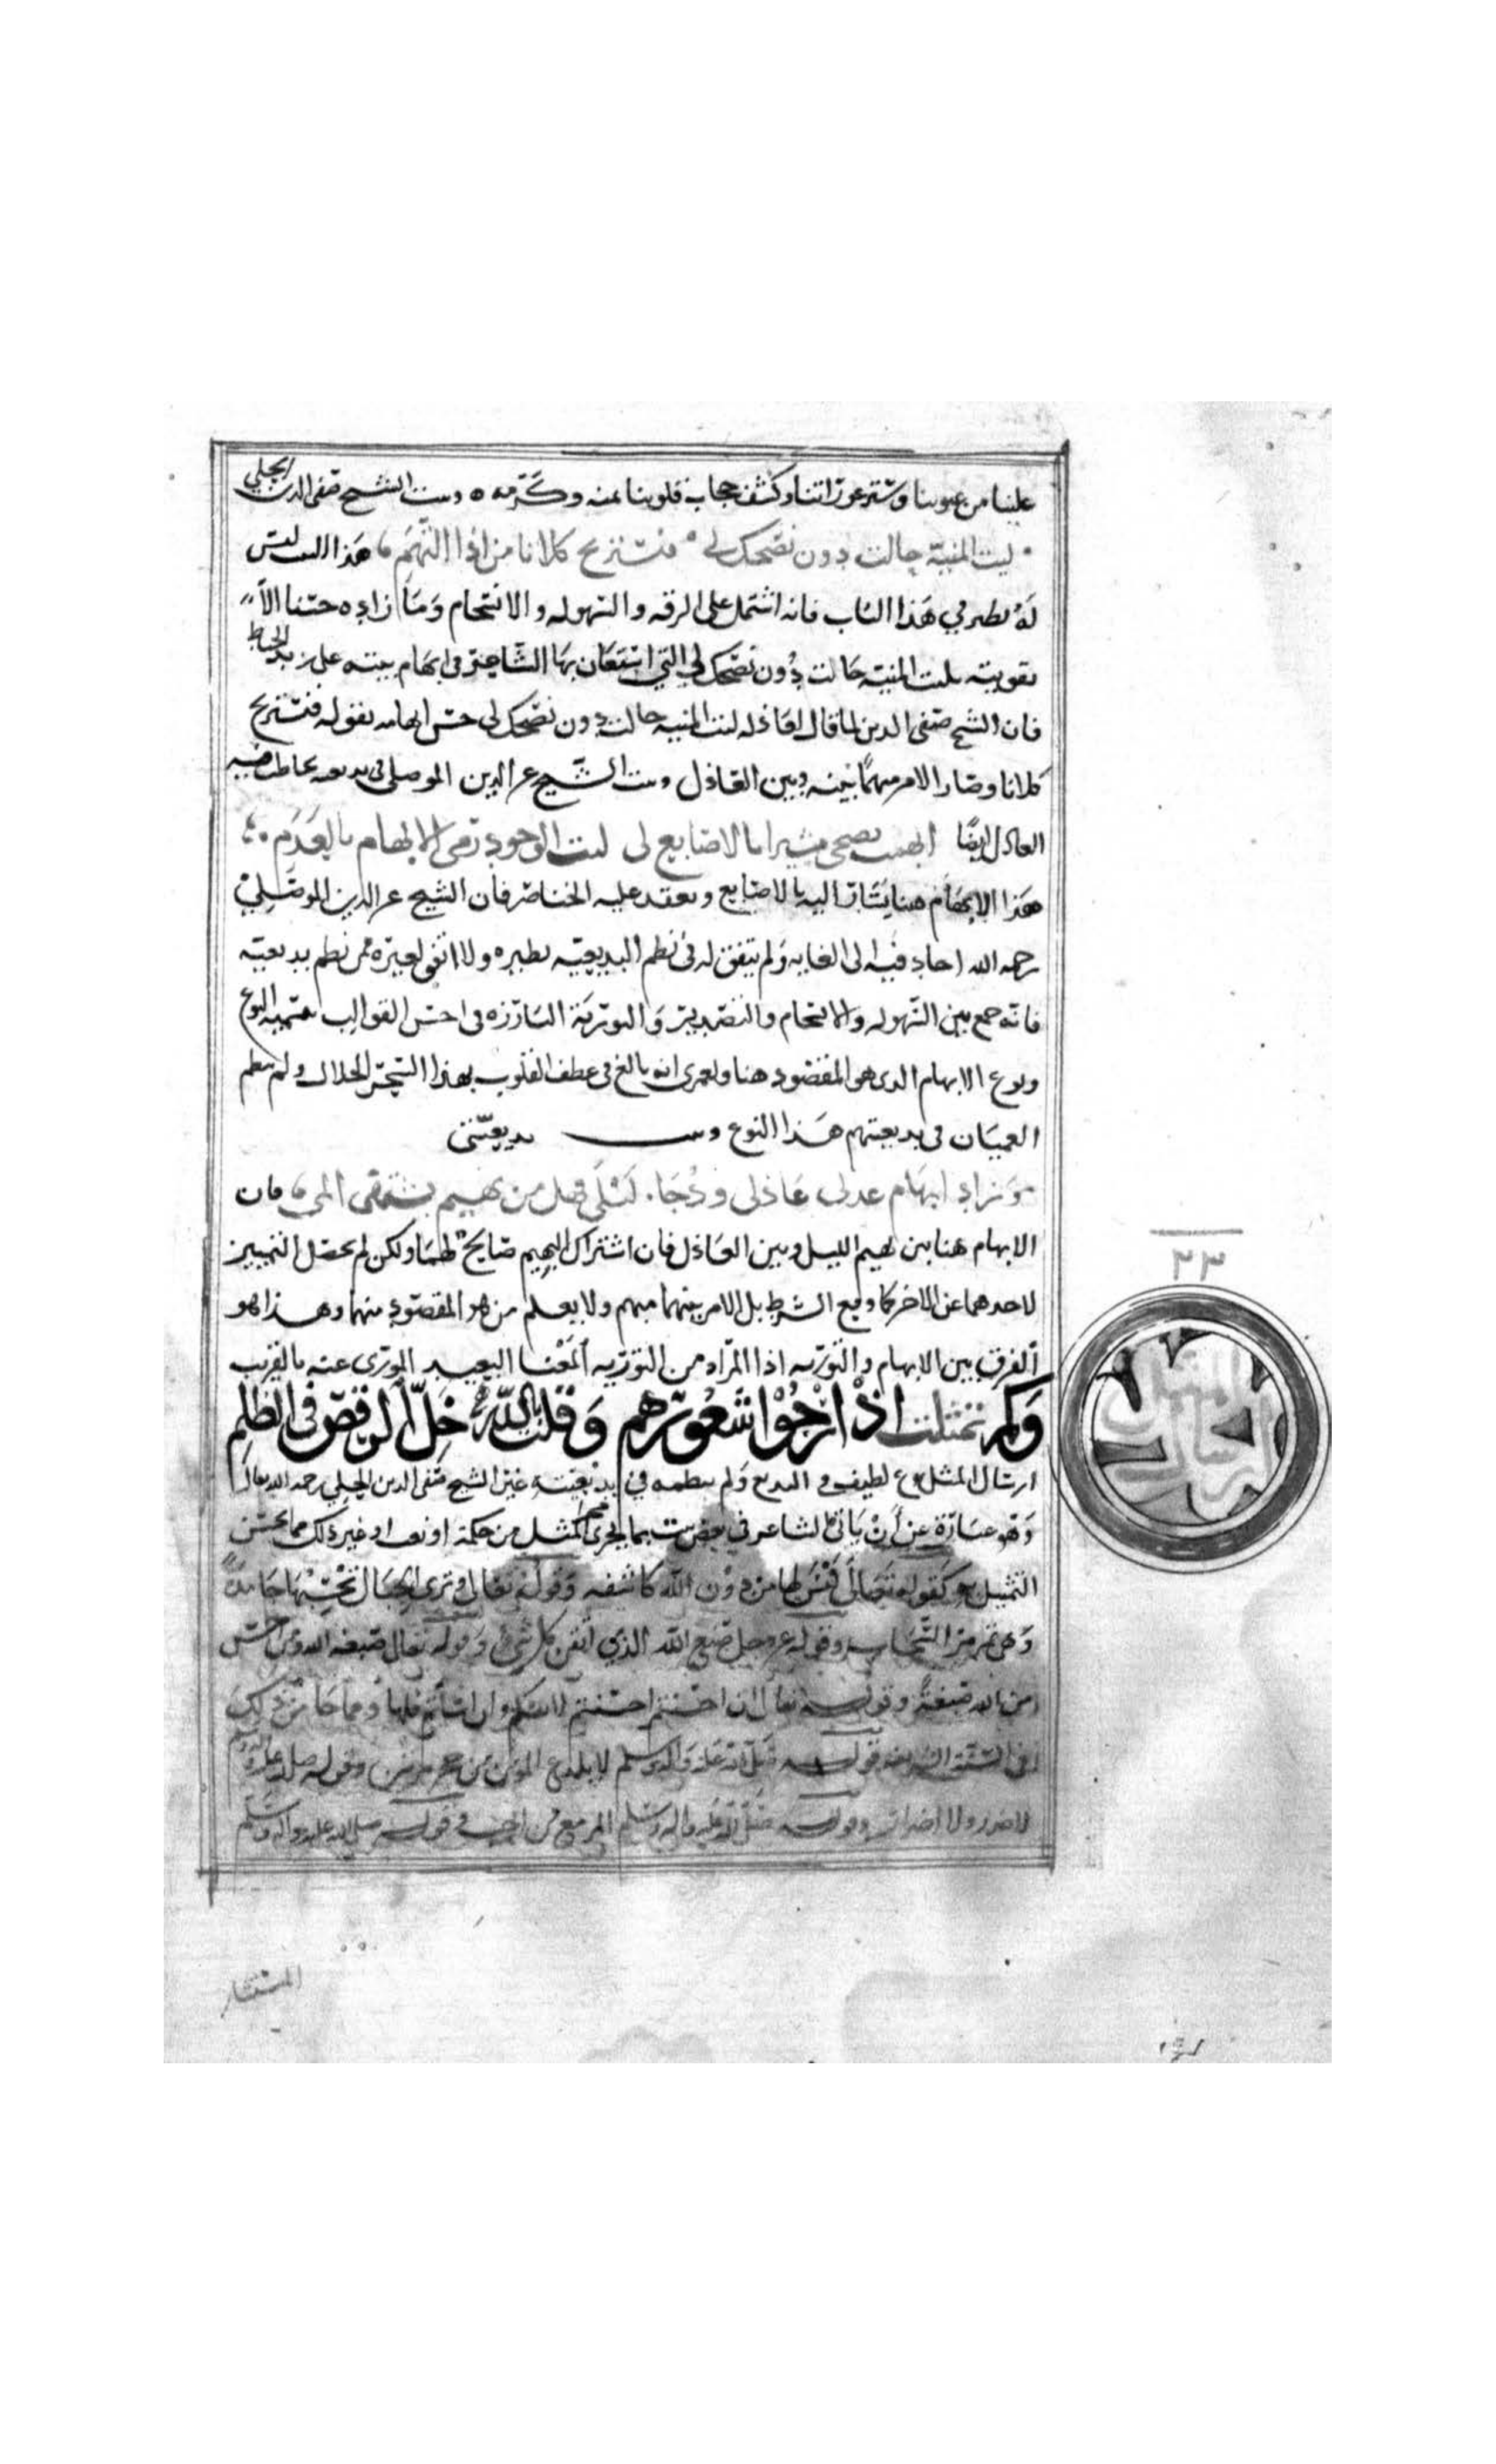 علينا من عيوبنا وستر عوراتنا وكشف حجاب قلوبنا بمنه وكرمه ه وبيت الشيخ صفى الدين الحلي
ليت المنية حالت دون نصحك لي فنستريح كلانا من اذا التهم هذا البيت ليس
له نظير في هذا الباب فانه اشتمل على الرقه والسهوله والانسجام وما زاده حسنا الا
تقويته بليت المنيه حالت دون نصحك لي التي استعان بها الشاعر في ابهام بيته على زيد الخياط
فان الشيخ صفى الدين لما قال لعاذله ليت المنيه حالت دون نصحك لى حسن ابهامه بقوله فنستريح
كلانا وصار الامر مبهما بينه وبين العاذل وبيت الشيخ عز الدين الموصلى فى بديعيته يخاطب فيه
العاذل ايضا ابهمت نصحى مشيرا بالاصابع لى ليت الوجود رمى الابهام بالعدم
هذا الابهام هنا يشار اليه بالاصابع وتعقد عليه الخناصر فان الشيخ عز الدين الموصلي
رحمه الله اجاد فيه الى الغايه ولم يتفق له فى نظم البديعيه نظيره ولا اتفق لغيره ممن نظم بديعيه
فانه جمع بين السهوله والانسجام والتصدير والتوريه البارزه فى احسن القوالب بتسميه النوع
ونوع الابهام الدى هو المقصود هنا ولعمرى انه بالغ فى عطف القلوب بهذا السحر الحلال ولم ينظم
العميان فى بديعيتهم هذا النوع وبيت بديعيتى
وزاد ابهام عدلى عاذلى ودجا ليلى فهل من بهيم يشتفى المى فان
الابهام هنا بين بهيم الليل وبين العاذل فان اشتراك البهيم صالح لهما ولكن لم يحصل التمييز
لاحدهما عن الاخر كما وقع الشرط بل الامر بينهما مبهم ولا يعلم من هو المقصود منهما وهذا هو
الفرق بين الابهام والتوريه اذ المراد من التوريه المعنا البعيد المورى عنه بالقريب
وكم تمثلت اذ ارخوا شعورهم وقلت بالله خلوا الرقص فى الظلم
ارسال المثل نوع لطيف في البديع ولم ينظمه في بديعيته غير الشيخ صفى الدين الحلي رحمه الله تعالى
وهو عبارة عن ان يأتى الشاعر في بعض بيت بما يجرى مجرى المثل من حكمة او نعت او غير ذلك مما يحسن
التمثيل به كقوله تعالى ليس لها من دون الله كاشفه وقوله تعالى وترى الجبال تحسبها جامدة
وهى تمر مر السحاب وقوله عز وجل صنع الله الذي اتقن كل شي وقوله تعالى صبغه الله ومن احسن
من الله صبغة وقوله تعالى ان احسنتم احسنتم لانفسكم وان اسأتم فلها ومما جا من ذلك
فى السنة الشريفه قوله صلى الله عليه واله وسلم لا يلدغ المؤمن من جحر مرتين وقوله صلى الله عليه واله وسلم
لا ضرر ولا اضرار وقوله صلى الله عليه واله وسلم المرء مع من احب وقوله صلى الله عليه واله وسلم
المستشار
٢٣
ارسال المثل